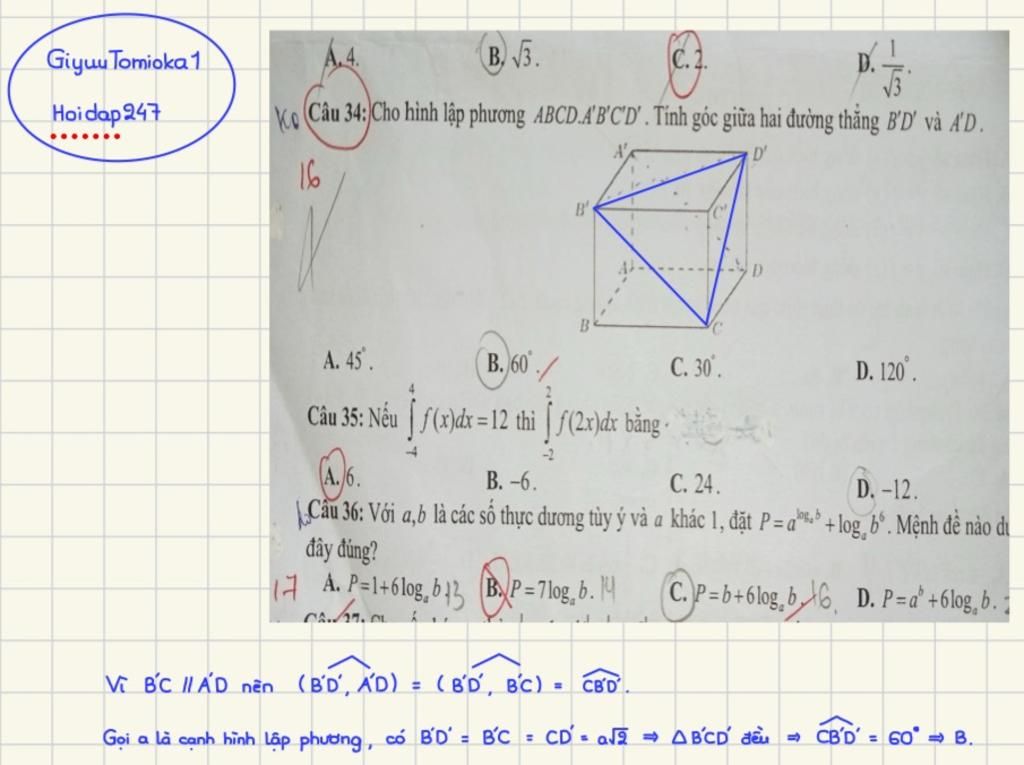 GiyuuTomioka1
Hoidap247
A. 4. B. √3. C. 2. D. 1/√3.
Ko Câu 34: Cho hình lập phương ABCD.A'B'C'D'. Tính góc giữa hai đường thẳng B'D' và A'D.
16
A' D'
B' C'
A D
B C
A. 45°. B. 60°. C. 30°. D. 120°.
Câu 35: Nếu ∫_{-4}^{4} f(x)dx = 12 thì ∫_{-2}^{2} f(2x)dx bằng
A. 6. B. −6. C. 24. D. −12.
Câu 36: Với a,b là các số thực dương tùy ý và a khác 1, đặt P = a^{log_a b} + log_a b^6. Mệnh đề nào
đây đúng?
17 A. P=1+6log_a b 13 B. P=7log_a b. 14 C. P=b+6log_a b 16. D. P=a^b+6log_a b.
Vì B'C // A'D nên (B'D', A'D) = (B'D', B'C) = CB'D'.
Gọi a là cạnh hình lập phương, có B'D' = B'C = CD' = a√2 ⇒ ΔB'CD' đều ⇒ CB'D' = 60° ⇒ B.